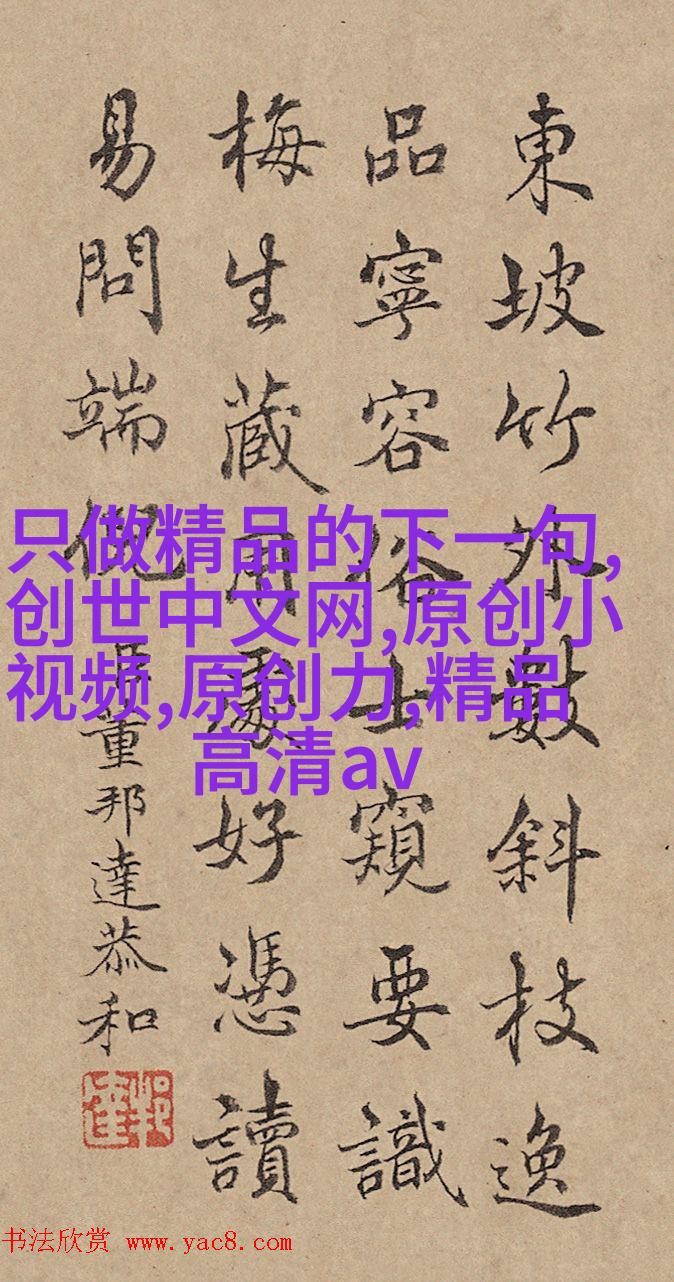 東坡竹外數斜枝逸
品寧容俗士窺要識
梅生藏用處好憑讀
易問端倪
臣董邦達恭和
只做精品的下一句,
创世中文网,原创小
视频,原创力,精品
高清av
书法欣赏 www.yac8.com